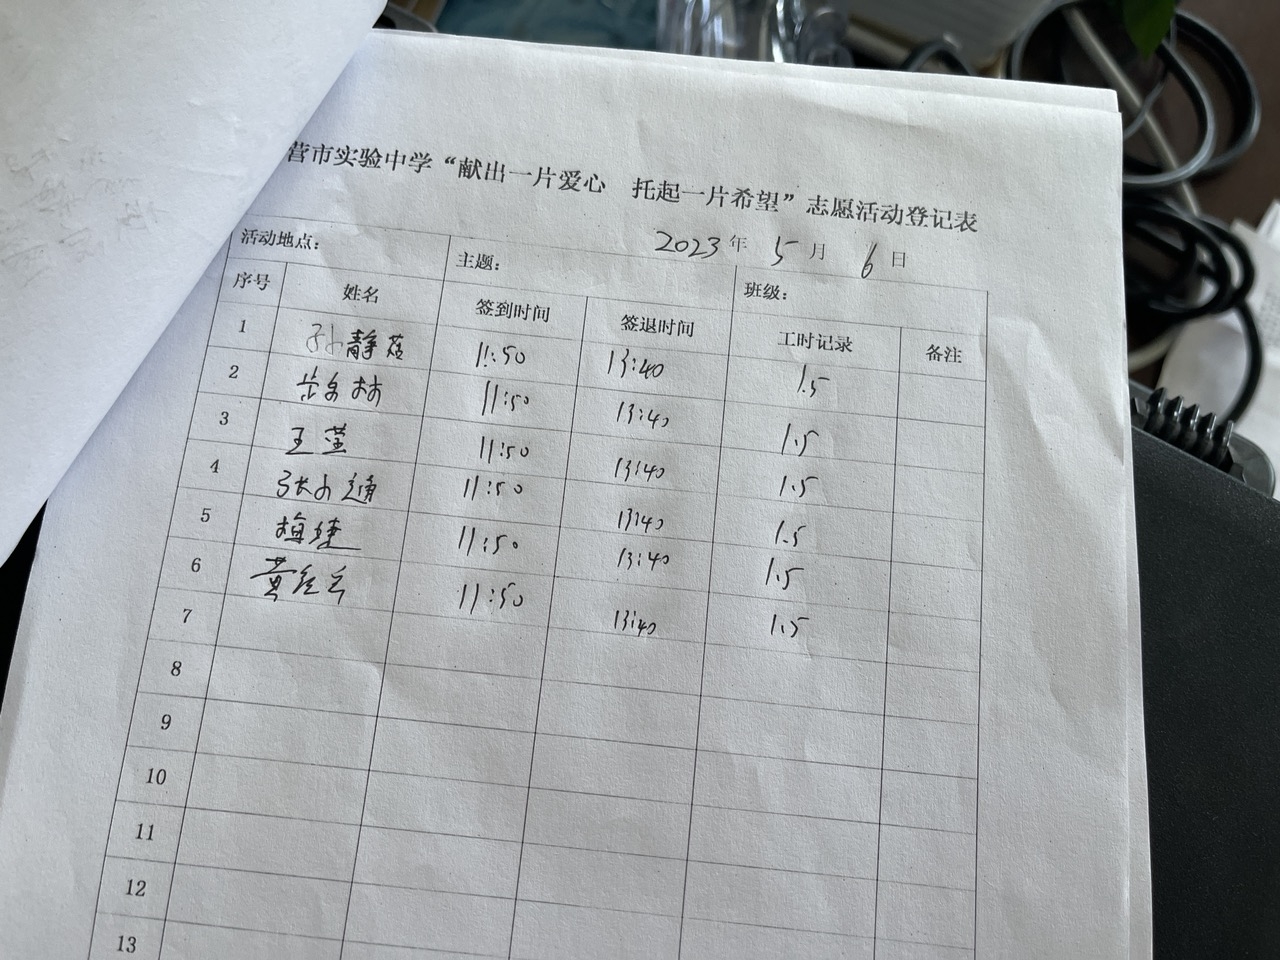 营市实验中学“献出一片爱心 托起一片希望”志愿活动登记表
2023年 5月 6日
活动地点： 主题： 班级：
序号 姓名 签到时间 签退时间 工时记录 备注
1 孙静 11:50 13:40 1.5
2 林 11:50 13:40 1.5
3 王莹 11:50 13:40 1.5
4 张小通 11:50 13:40 1.5
5 梅婕 11:50 13:40 1.5
6 黄 11:50 13:40 1.5
7
8
9
10
11
12
13